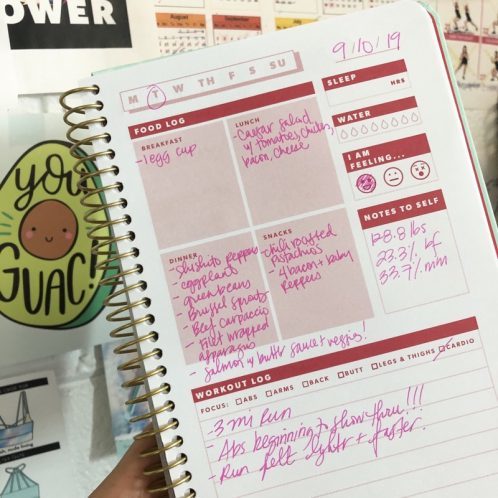 OWER
August
September
9/10/19
M T W TH F S SU
SLEEP
HRS
WATER
I AM
FEELING...
NOTES TO SELF
128.8 lbs
23.3% bf
33.7% mm
FOOD LOG
BREAKFAST
- 1 egg cup
LUNCH
- Caesar salad
w/ tomatoes, chicken,
bacon, cheese
DINNER
- Shishito peppers
- eggplant
- green beans
- Brussel sprouts
- Beef Carpaccio
- Filet wrapped
asparagus
- Salmon w/ buttr sauce + veggies!
SNACKS
- chili roasted
pistachios
- 4 bacon + baby
peppers
WORKOUT LOG
FOCUS: ABS ARMS BACK BUTT LEGS & THIGHS CARDIO
- 3 mi run
- Abs beginning to show thru!!!
- Run felt lightr + faster!
you
GUAC!